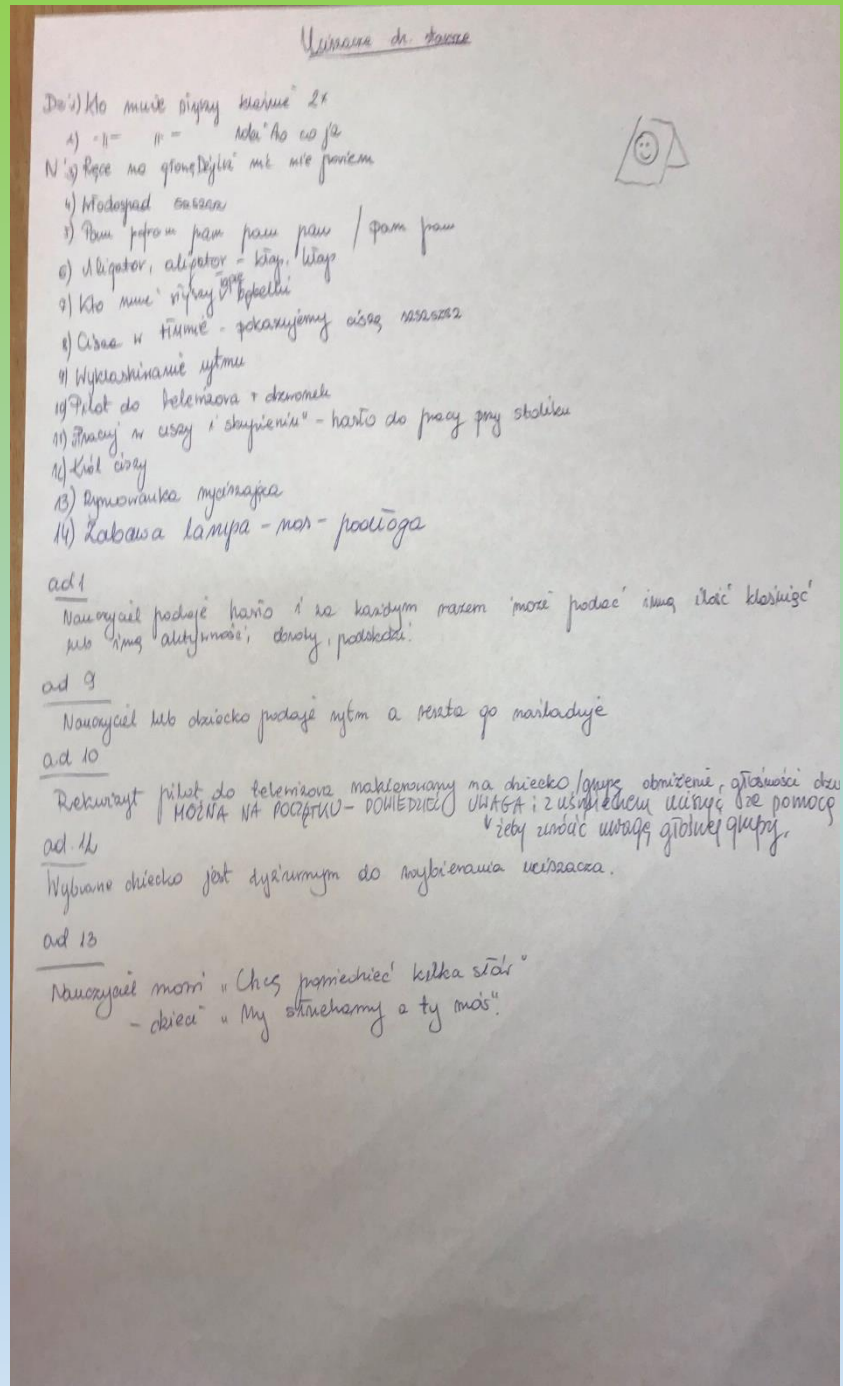 Uciszacze dz. starsze
Dz 1) Kto mnie słyszy klaśnie 2x
2) -||- ||- robi to co ja
N 3) Ręce na głowę nie powiem
4) Wodospad szszsz
5) Pam param pam pam pam / pam pam
6) Aligator, aligator - kłap, kłap
7) Kto mnie słyszy bąbelki
8) Cisza w tłumie - pokazujemy ciszą szszszsz
9) Wyklaskiwanie rytmu
10) Pilot do telewizora + dzwonek
11) "Pracuj w ciszy i skupieniu" - hasło do pracy przy stoliku
12) Król ciszy
13) Rymowanka wyciszająca
14) Zabawa lampa - nos - podłoga
ad 1
Nauczyciel podaje hasło i za każdym razem może podać inną ilość klaśnięć
lub inną aktywność, obroty, podskoki.
ad 9
Nauczyciel lub dziecko podaje rytm a reszta go naśladuje
ad 10
Rekwizyt pilot do telewizora nakierowany na dziecko/grupę obniżenie, głośności
MOŻNA NA POCZĄTKU - POWIEDZIEĆ UWAGA i z uśmiechem uciszę ze pomocą
żeby zwrócić uwagę głośnej grupy.
ad. 12
Wybrane dziecko jest dyżurnym do wybierania uciszacza.
ad 13
Nauczyciel mówi „Chcę powiedzieć kilka słów"
- dzieci „My słuchamy a ty mów".